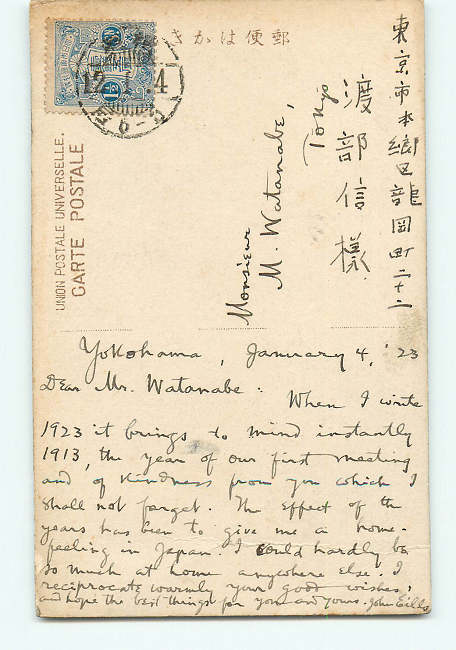 郵便はかき
UNION POSTALE UNIVERSELLE.
CARTE POSTALE
12.1.4
1½
東京市本郷区龍岡町二十二
渡部信様
Monsieur
M. Watanabe,
Tokyo
Yokohama, January 4, '23
Dear Mr. Watanabe: When I write
1923 it brings to mind instantly
1913, the year of our first meeting
and of kindness from you which I
shall not forget. The effect of the
years has been to give me a home-
feeling in Japan. I could hardly be
so much at home anywhere else. I
reciprocate warmly your good wishes,
and hope the best things for you and yours. John